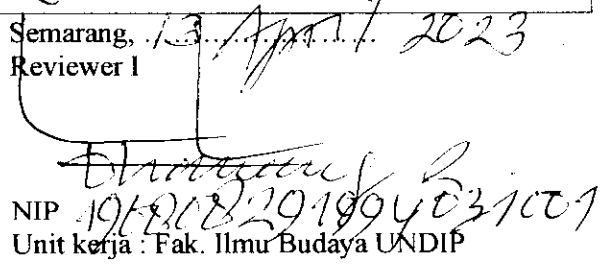 Semarang, 13 April 2023
Reviewer 1
NIP 196808291994031001
Unit kerja : Fak. Ilmu Budaya UNDIP